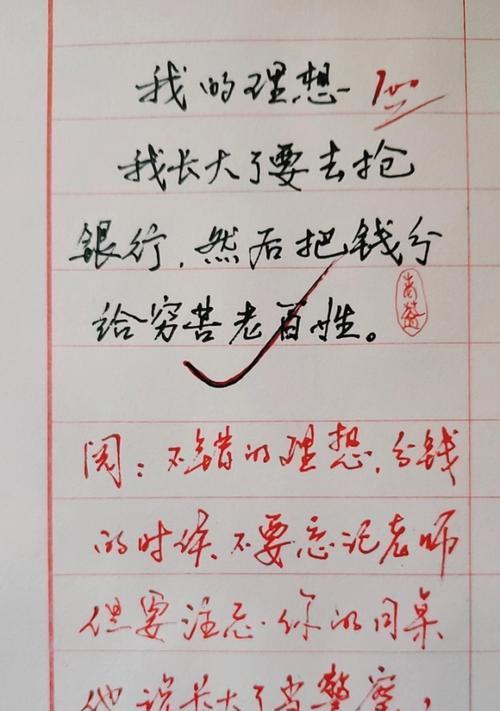 我的理想 100
我长大了要去抢
银行，然后把钱分
给穷苦老百姓。
阅：不错的理想，分钱
的时候，不要忘记老师
但要注意·你的同桌
他说长大了当警察，